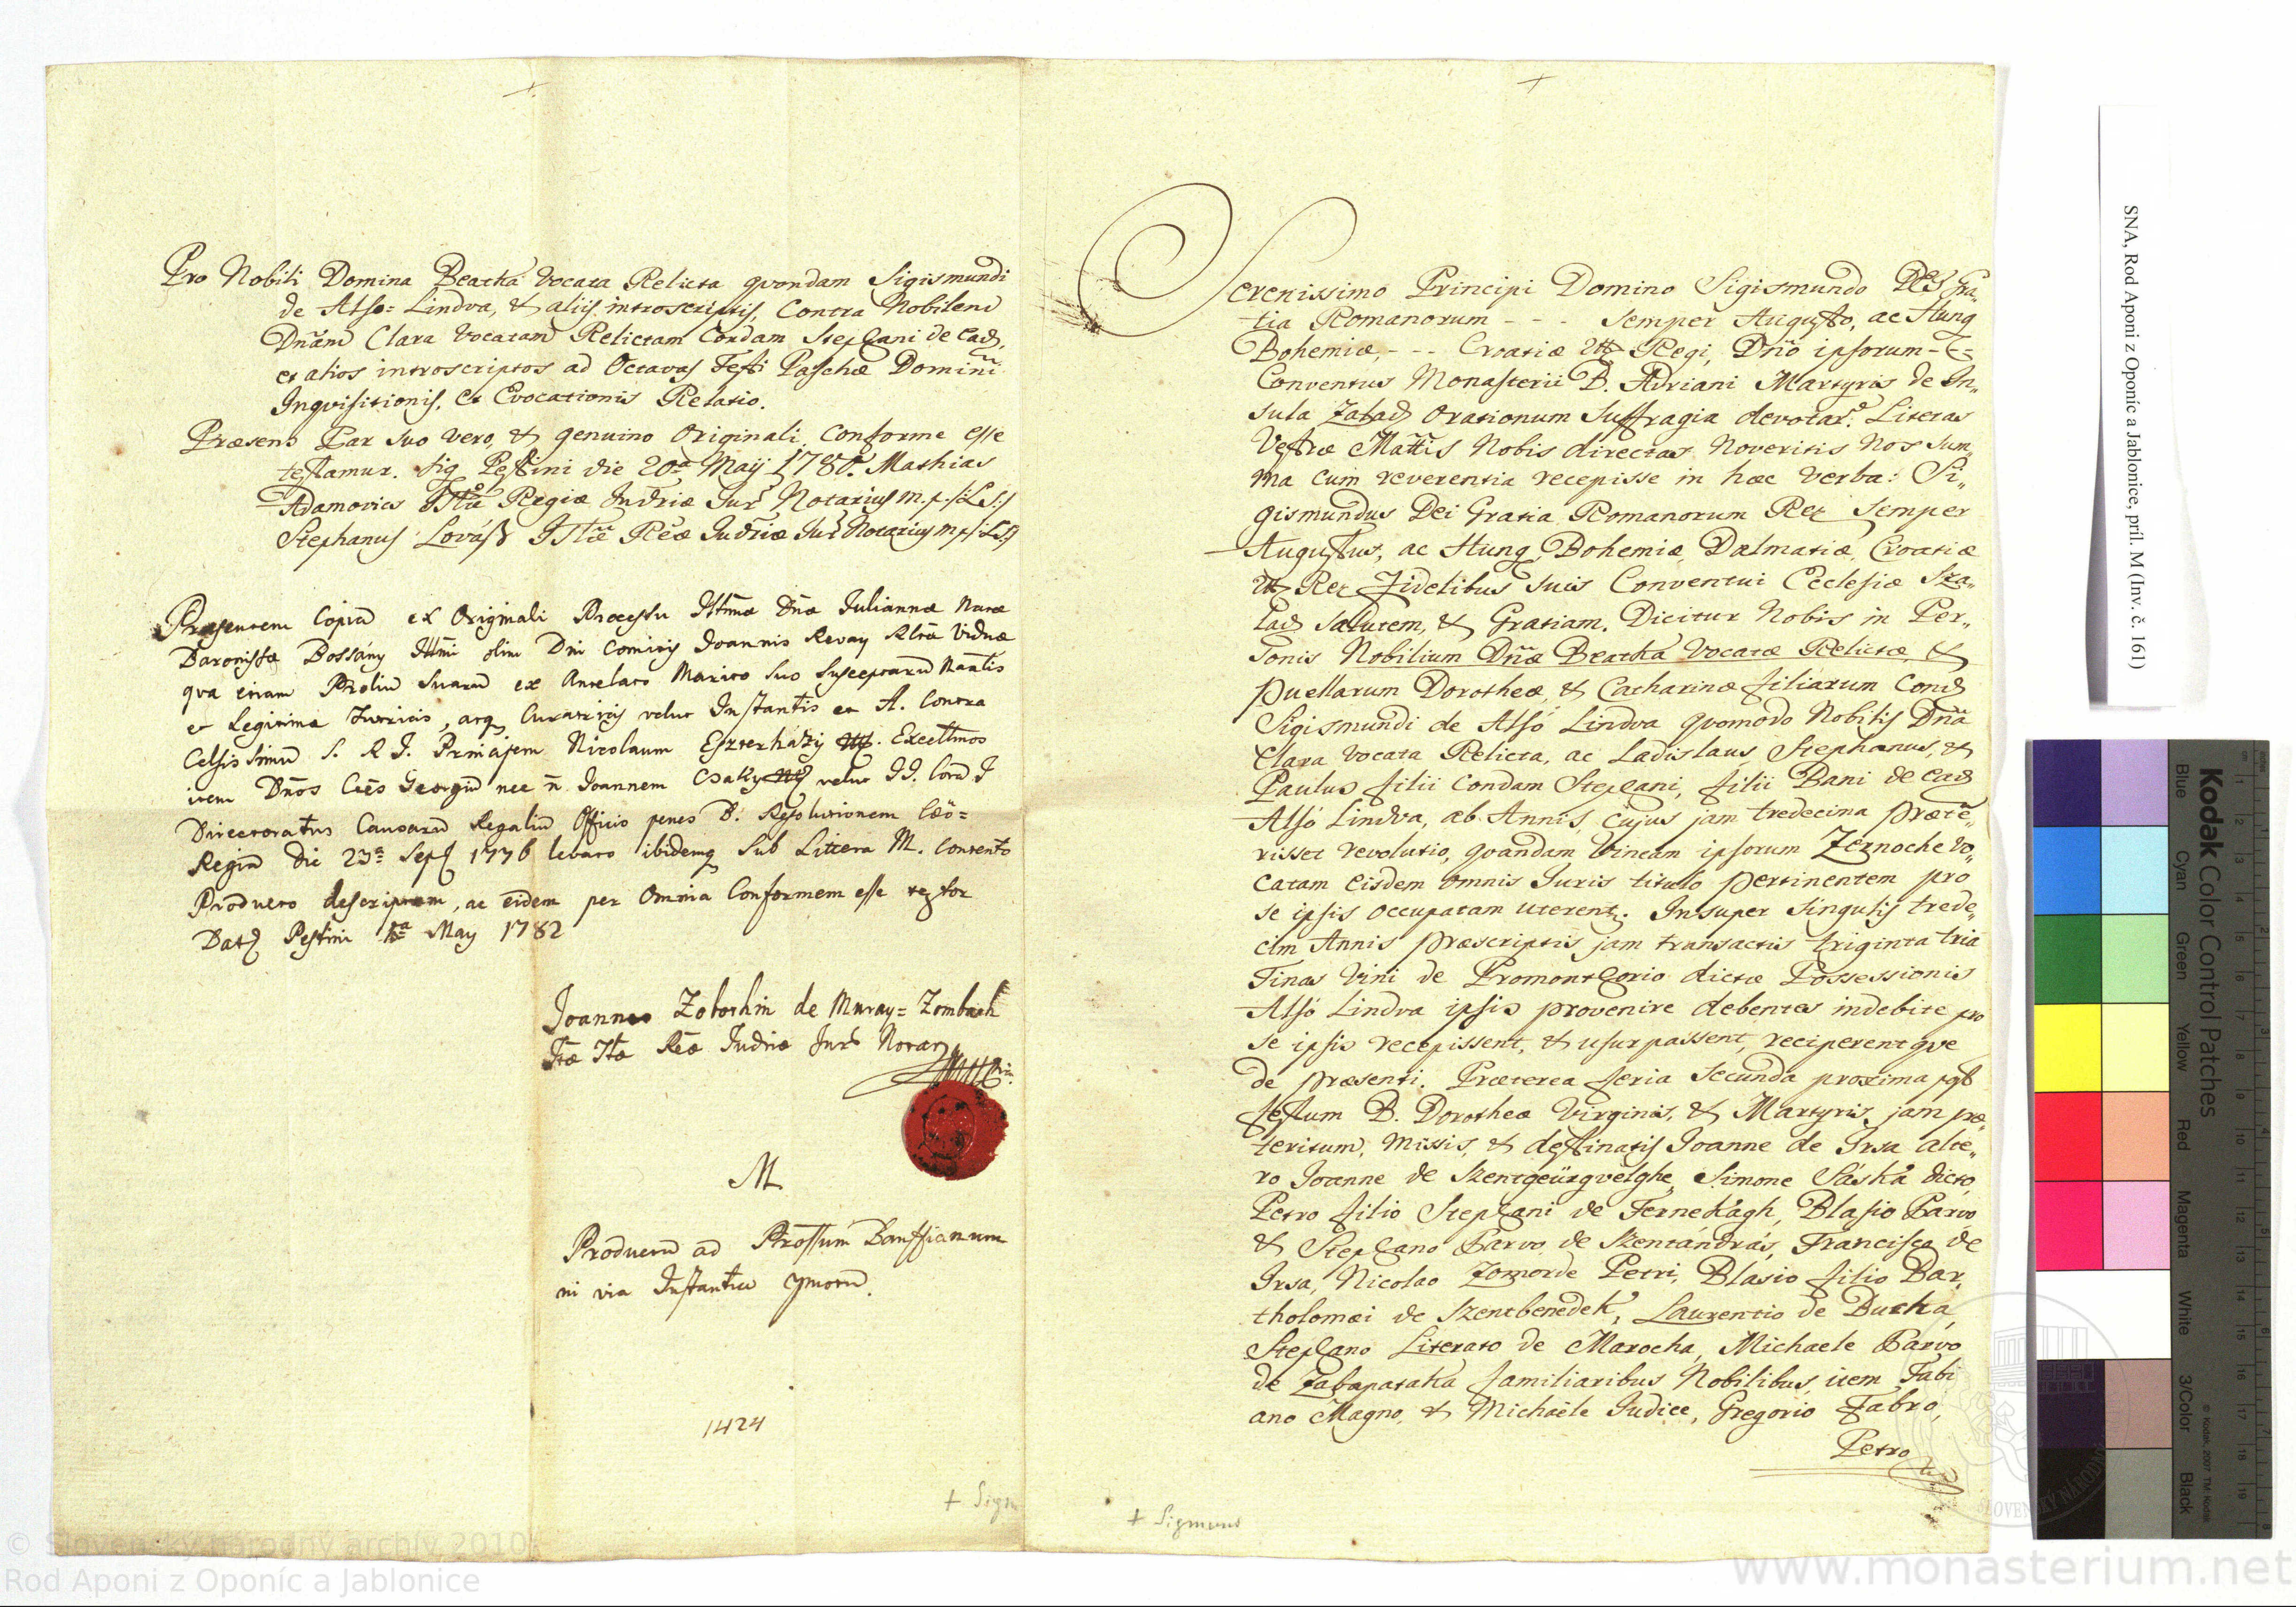 Pro Nobili Domina Beatka vocata Relicta qvondam Sigismundi
de Alsó=Lindva, & aliis introscriptis, Contra Nobilem
Dnam Clara vocatam Relictam Condam Stephani de ead,
et alios introscriptos ad Octavas Festi Paschæ Domini
Inqvisitionis, et Evocationis Relatio.
Præsens Par suo vero, & genuino Originali conforme esse
testamur. Sig Pestini die 20a Maij 1780. Mathias
Adamovics Regiæ Notarius m.p. (L.S.)
Stephanus Lováß Notarius m.p. (L.S.)
Præsentem Copiam ex Originali Processu Dnæ Juliannæ Natæ
Baronissæ Bossány olim Dni Comitis Joannis Revay viduæ
qva etiam Prolium Suarum ex Antelato Marito Suo Susceptarum
et Legitimæ Tutricis, atq Curatricis velut Instantis et A. Contra
Celsissimum S. R. I. Principem Nicolaum Eszterházÿ Excellmos
item Dnos Georgium nec n Joannem Csaky velut I I. Coram I
Directoratus Causarum Regalium Officio penes B. Resolutionem Cæo=
Regiam die 23a Sept 1776 levato ibidemq Sub Littera M. contento
Producto descriptam, ac eidem per Omnia Conformem esse testor
Dat Pestini May 1782
Joannes Zoboshin de Muray=Zombath
Notar
M
Productum ad Banffianum
ni via Instantiæ
1424
+ Sigm
Serenissimo Principi Domino Sigismundo Dei Gra„
tia Romanorum - - - Semper Augusto, ac Hung
Bohemiæ, - - - Croatiæ Regi, Dno ipsorum
Conventus Monasterii B. Adriani Martyris de In„
sula Zalad Orationum Suffragia devotar. Literas
Vestræ Mattis Nobis directas Noveritis Nos Sum„
ma cum reverentia recepisse in hæc verba: Si„
gismundus Dei Gratia Romanorum Rex Semper
Augustus, ac Hung, Bohemiæ, Dalmatiæ, Croatiæ
Rex Fidelibus suis Conventui Ecclesiæ Sza„
lad Salutem, & Gratiam. Dicitur Nobis in Per„
sonis Nobilium Dnæ Beatka vocatæ Relictæ, &
puellarum Dorotheæ, & Catharinæ filiarum Cond
Sigismundi de Alsó Lindva qvomodo Nobilis Dna
Clara vocata Relicta, ac Ladislaus, Stephanus, &
Paulus filii condam Stephani, filii Bani de ead
Alsó Lindva, ab Annis, cujus jam tredecima præte„
risset revolutio, qvandam vineam ipsorum Zernoche vo„
catam eisdem omnis Juris titulo pertinentem pro
se ipsis occupatam uterent. Insuper singulis trede„
cim Annis præscriptis jam transactis triginta tria
Tinas vini de Promonthorio dictæ Possessionis
Alsó Lindva ipsis provenire debentes indebite pro
se ipsis recepissent, & usurpassent, reciperentqve
de præsenti. Præterea feria secunda proxima post
festum B. Dorotheæ Virginis, & Martyris jam præ„
teritum, missis, & destinatis Joanne de Irsa alte„
ro Joanne de Szentgeürgvelghe, Simone Sáska dicto,
Petro filio Stephani de Fernekágh, Blasio Parvo
& Stephano Parvo de Szentandrás, Francisco de
Irsa, Nicolao Zomorde Petri, Blasio filio Bar„
tholomæi de Szentbenedek, Laurentio de Butka,
Stephano Literato de Marocha, Michaele Parvo
de Zabapataka familiaribus Nobilibus, item Fabi
ano Magno, & Michaële Judice, Gregorio Fabro,
Petro
+ Sigmund
SNA, Rod Aponi z Oponíc a Jablonice, pril. M (Inv. č. 161)
Kodak Color Control Patches
Blue Cyan Green Yellow Red Magenta White 3/Color Black
© Kodak, 2007 TM: Kodak
© Slovenský národný archív 2010
Rod Aponi z Oponíc a Jablonice
www.monasterium.net